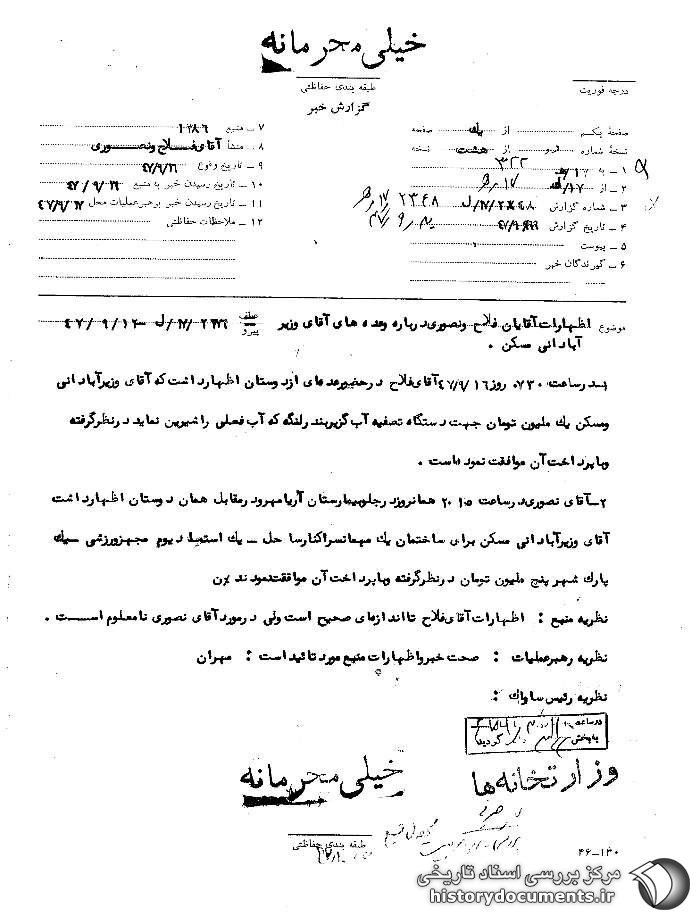 خیلی محرمانه
طبقه بندی حفاظتی
درجه فوریت
گزارش خبر
صفحه یکم از یک صفحه
نسخه شماره از هشت نسخه
۱ – به ۳۲۲
۲ – از ۱۷/ه
۳ – شماره گزارش
۴ – تاریخ گزارش
۵ – پیوست
۶ – گیرندگان خبر
۷ – منبع ۱۳۸۶
۸ – منشأ آقای فلاح ونصوری
۹ – تاریخ وقوع
۱۰ – تاریخ رسیدن خبر به منبع
۱۱ – تاریخ رسیدن خبر برهبرعملیات محل
۱۲ – ملاحظات حفاظتی
موضوع اظهارات آقایان فلاح ونصوری درباره وعده های آقای وزیر
آبادانی مسکن .
عطف
پیرو
۱– در ساعت ۰۷۳۰ روز ۴۷/۹/۱۶ آقای فلاح در حضور عده ای از دوستان اظهار داشت که آقای وزیر آبادانی
ومسکن یک ملیون تومان جهت دستگاه تصفیه آب گزیر بند رلنگه که آب فعلی را شیرین نماید در نظر گرفته
وبا پرداخت آن موافقت نموده است .
۲– آقای نصوری در ساعت ۲۰۱۵ همانروز در جلو بیمارستان آریامهر ودر مقابل همان دوستان اظهار داشت
آقای وزیر آبادانی مسکن برای ساختمان یک مهمانسرا کنار ساحل – یک استیدیوم مجهز ورزشی – یک
پارک شهر پنج ملیون تومان در نظر گرفته وبا پرداخت آن موافقت نمودند
نظریه منبع : اظهارات آقای فلاح تا اندازهای صحیح است ولی در مورد آقای نصوری نامعلوم است .
نظریه رهبر عملیات : صحت خبر واظهارات منبع مورد تائید است : مهران
نظریه رئیس ساواک :
در ساعت
به پخش گردید
وزارتخانه ها
خیلی محرمانه
طبقه بندی حفاظتی
۴۶–۱۳۰
مرکز بررسی اسناد تاریخی
historydocuments.ir